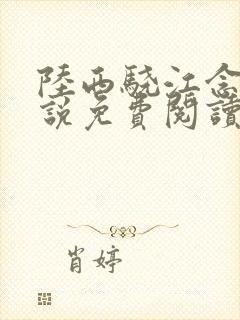 陸西驍江念
說免費閱讀
肖婷